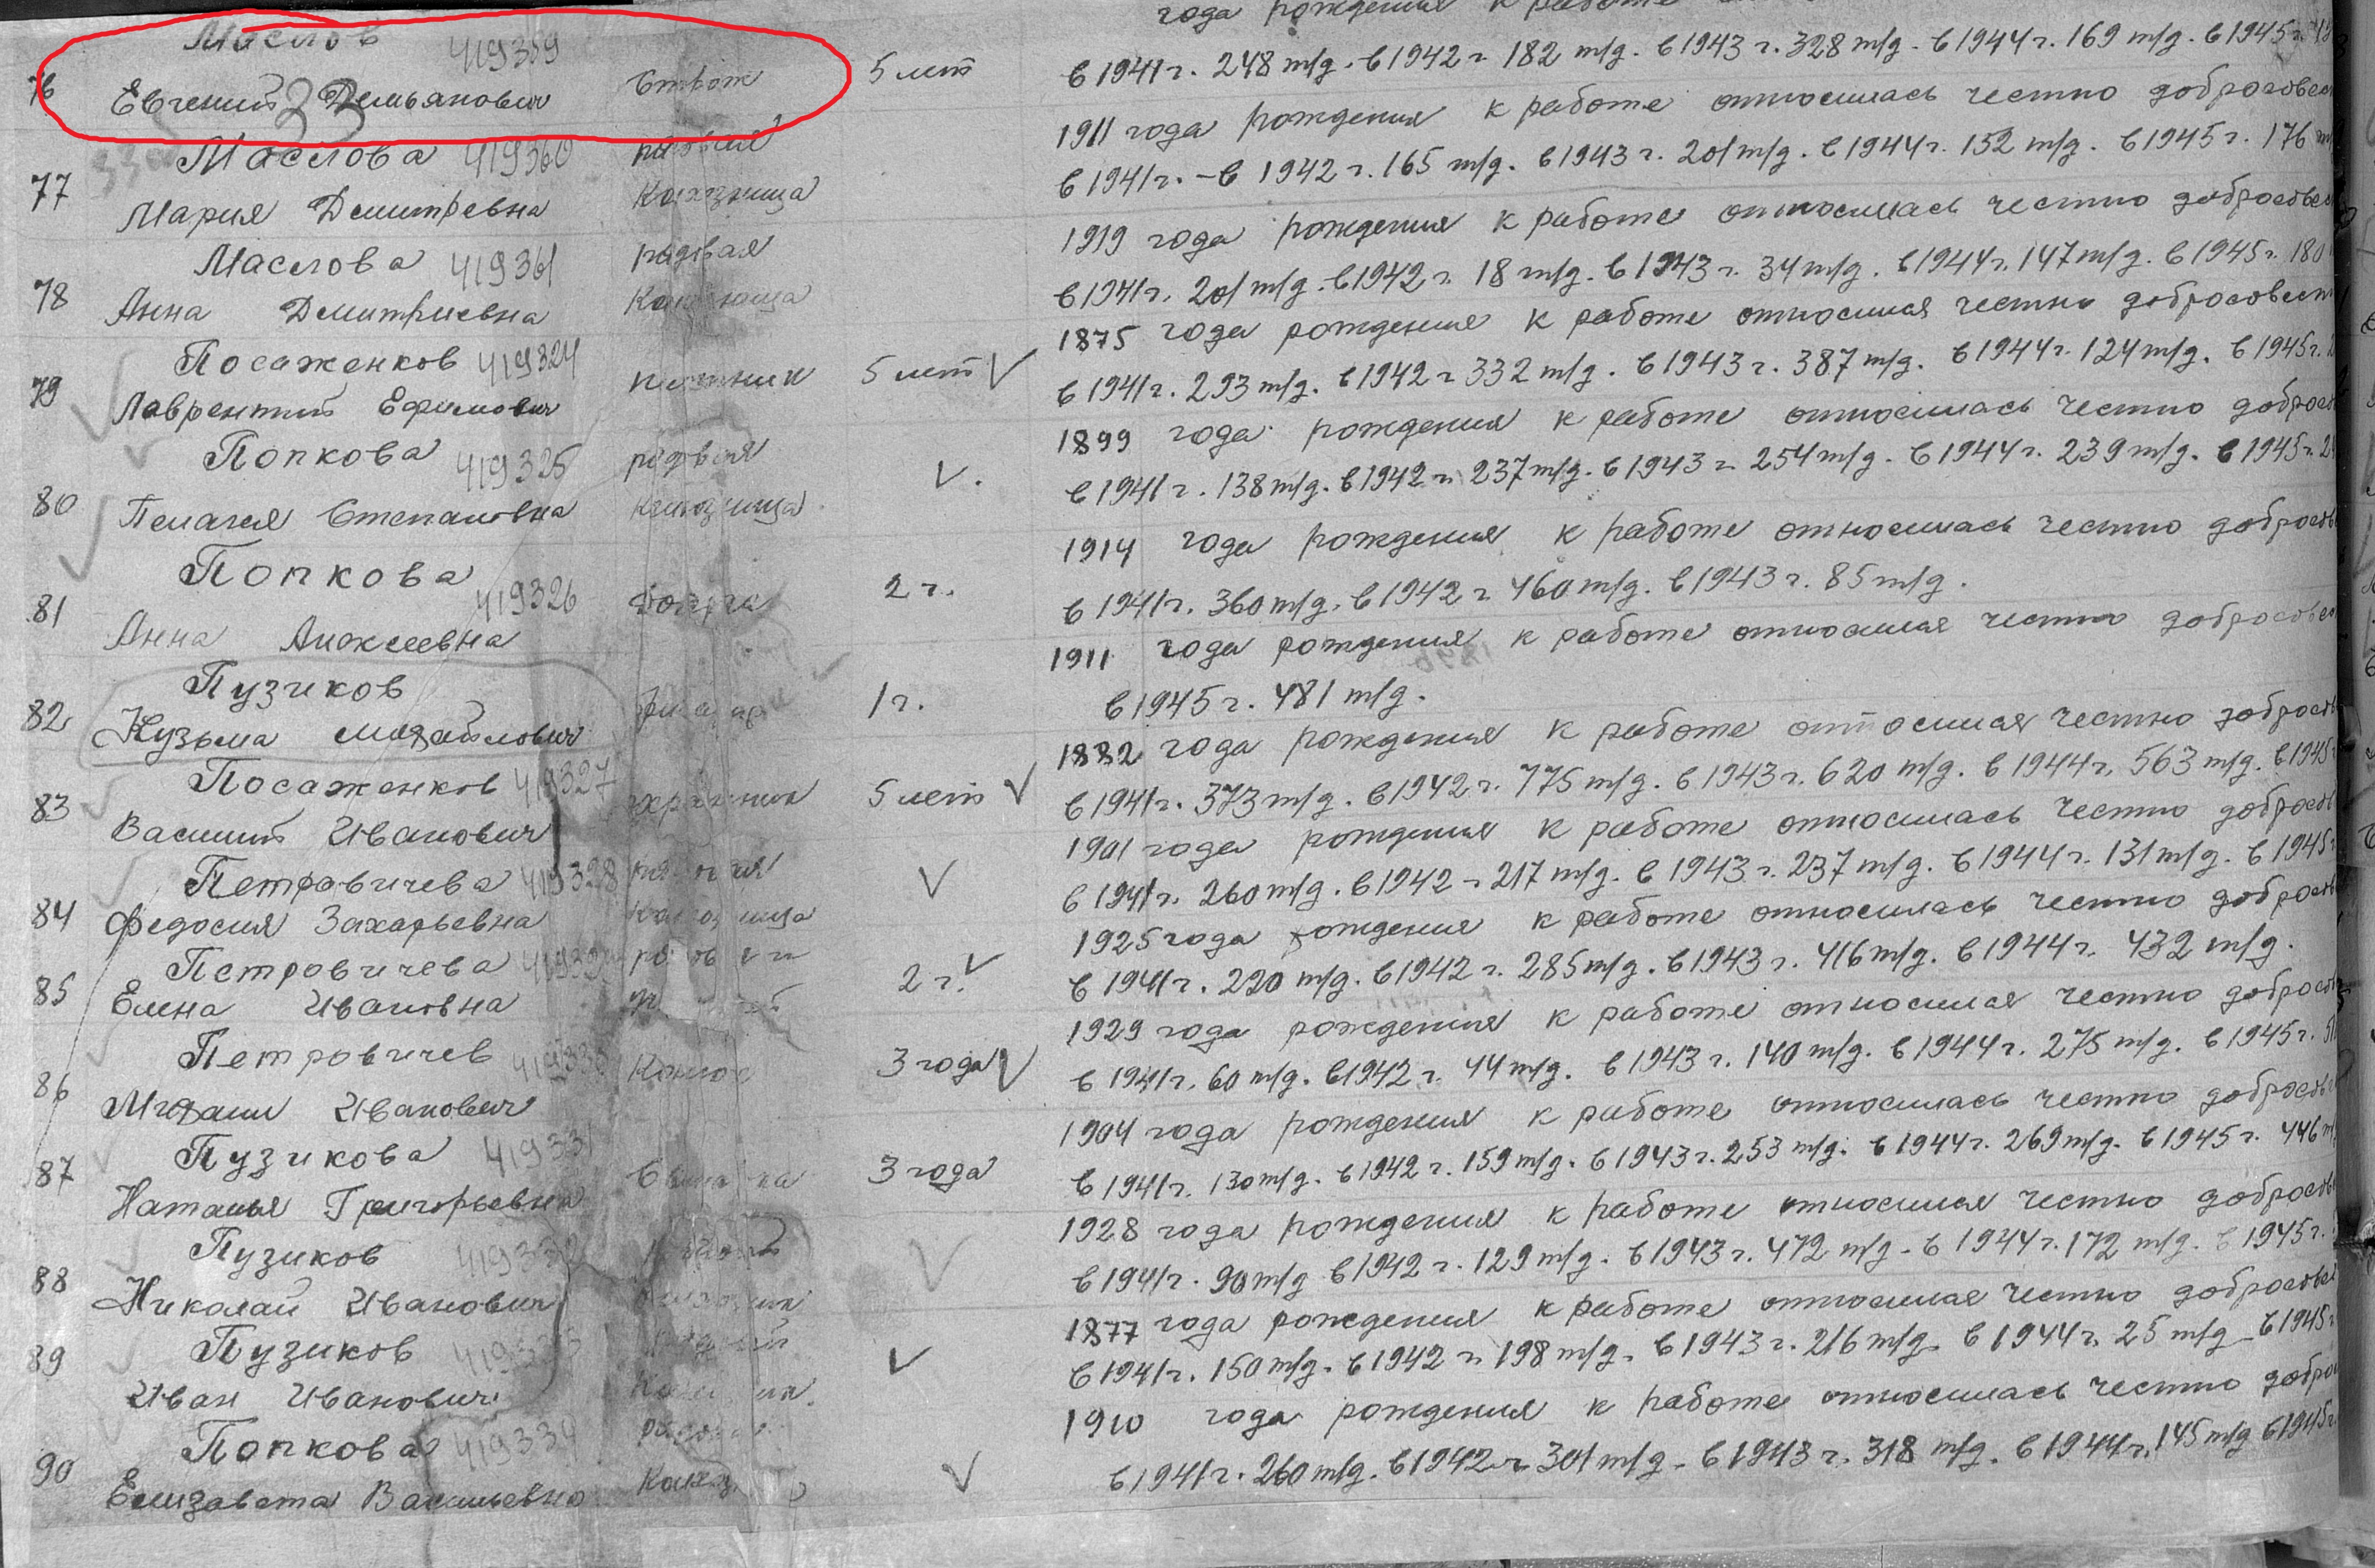 года рождения к работе
Маслов 419359
76 Евгений Демьянович Сторож 5 лет в 1941 г. 248 т/д. в 1942 г. 182 т/д. в 1943 г. 328 т/д. в 1944 г. 169 т/д. в 1945 г.
33
Маслова 419360 рядовая 1911 года рождения к работе относилась честно
77 Мария Дмитревна Колхозница в 1941 г. - в 1942 г. 165 т/д. в 1943 г. 201 т/д. в 1944 г. 152 т/д. в 1945 г. 176
Маслова 419361 рядовая 1919 года рождения к работе относилась честно
78 Анна Дмитриевна Колхозница в 1941 г. 201 т/д. в 1942 г. 18 т/д. в 1943 г. 34 т/д. в 1944 г. 147 т/д. в 1945 г. 180
Посаженков 419324 1875 года рождения к работе относился честно
79 Лаврентий Ефимович 5 лет в 1941 г. 293 т/д. в 1942 г. 332 т/д. в 1943 г. 387 т/д. в 1944 г. 124 т/д. в 1945 г.
Попкова 419325 рядовая 1899 года рождения к работе относилась честно
80 Пелагея Степановна Колхозница в 1941 г. 138 т/д. в 1942 г. 237 т/д. в 1943 г. 254 т/д. в 1944 г. 239 т/д. в 1945 г.
Попкова 419326 1914 года рождения к работе относилась честно
81 Анна Алексеевна 2 г. в 1941 г. 360 т/д. в 1942 г. 460 т/д. в 1943 г. 85 т/д.
Пузиков 1911 года рождения к работе относился честно
82 Кузьма Михайлович 1 г. в 1945 г. 481 т/д.
Посаженков 419327 1882 года рождения к работе относился честно
83 Василий Иванович 5 лет в 1941 г. 373 т/д. в 1942 г. 775 т/д. в 1943 г. 620 т/д. в 1944 г. 563 т/д. в 1945
Петровичева 419328 рядовая 1901 года рождения к работе относилась честно
84 Федосия Захарьевна Колхозница в 1941 г. 260 т/д. в 1942 г. 217 т/д. в 1943 г. 237 т/д. в 1944 г. 131 т/д. в 1945
Петровичева 1925 года рождения к работе относилась честно
85 Елена Ивановна 2 г. в 1941 г. 220 т/д. в 1942 г. 285 т/д. в 1943 г. 416 т/д. в 1944 г. 432 т/д.
Петровичев 419330 1929 года рождения к работе относился честно
86 Михаил Иванович Конюх 3 года в 1941 г. 60 т/д. в 1942 г. 44 т/д. в 1943 г. 140 т/д. в 1944 г. 275 т/д. в 1945 г.
Пузикова 419331 1904 года рождения к работе относилась честно
87 Наталья Григорьевна 3 года в 1941 г. 130 т/д. в 1942 г. 159 т/д. в 1943 г. 253 т/д. в 1944 г. 269 т/д. в 1945 г. 446
Пузиков 419332 1928 года рождения к работе относился честно
88 Николай Иванович в 1941 г. 90 т/д в 1942 г. 129 т/д. в 1943 г. 472 т/д. в 1944 г. 172 т/д. в 1945 г.
Пузиков 1877 года рождения к работе относился честно
89 Иван Иванович в 1941 г. 150 т/д. в 1942 г. 198 т/д. в 1943 г. 216 т/д. в 1944 г. 25 т/д в 1945
Попкова 419334 1910 года рождения к работе относилась честно
90 Елизавета Васильевна в 1941 г. 260 т/д. в 1942 г. 301 т/д. в 1943 г. 318 т/д. в 1944 г. 145 т/д в 1945 г.